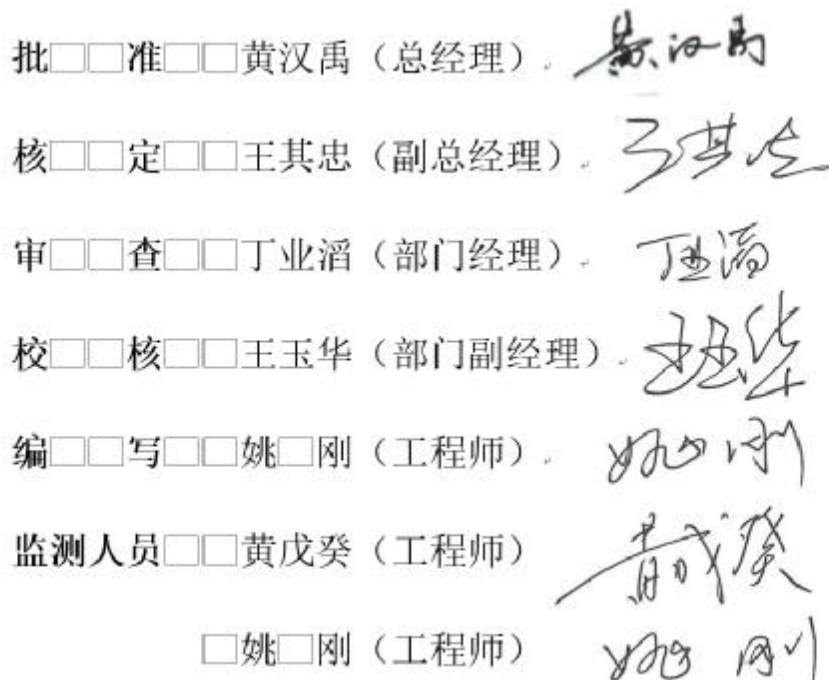 批□□准□□黄汉禹（总经理） 黄汉禹
核□□定□□王其忠（副总经理） 王其忠
审□□查□□丁业滔（部门经理） 丁业滔
校□□核□□王玉华（部门副经理） 王玉华
编□□写□□姚□刚（工程师） 姚刚
监测人员□□黄戊癸（工程师） 黄戊癸
□姚□刚（工程师） 姚刚